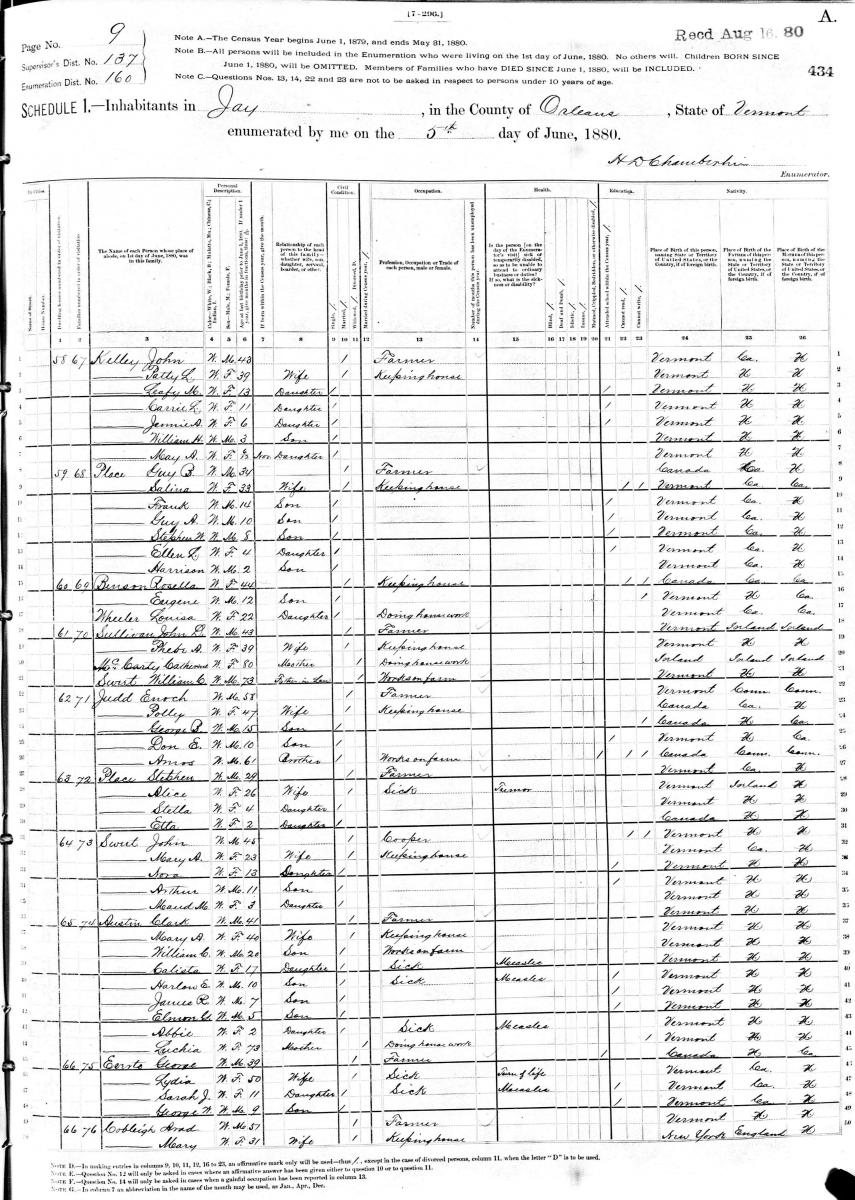 [7-296.]
A.
Page No. 9
Supervisor's Dist. No. 137
Enumeration Dist. No. 160
Note A.—The Census Year begins June 1, 1879, and ends May 31, 1880.
Note B.—All persons will be included in the Enumeration who were living on the 1st day of June, 1880. No others will. Children BORN SINCE
June 1, 1880, will be OMITTED. Members of Families who have DIED SINCE June 1, 1880, will be INCLUDED.
Note C.—Questions Nos. 13, 14, 22 and 23 are not to be asked in respect to persons under 10 years of age.
Recd Aug 16. 80
434
SCHEDULE 1.—Inhabitants in Jay, in the County of Orleans, State of Vermont
enumerated by me on the 5th day of June, 1880.
H D Chamberlin
Enumerator.
Personal Description. Civil Condition. Occupation. Health. Education. Nativity.
The Name of each Person whose place of abode, on 1st day of June, 1880, was in this family.
Relationship of each person to the head of this family—whether wife, son, daughter, servant, boarder, or other.
Profession, Occupation or Trade of each person, male or female.
Place of Birth of this person, naming State or Territory of United States, or the Country, if of foreign birth.
1 2 3 4 5 6 7 8 9 10 11 12 13 14 15 16 17 18 19 20 21 22 23 24 25 26
1 58 67 Kelley John W. M. 43 / Farmer Vermont Ca. H 1
2 Patty L. W. F. 39 Wife / Keeping house Vermont H H 2
3 Leafy M. W. F. 13 Daughter / / Vermont H H 3
4 Carrie L. W. F. 11 Daughter / / Vermont H H 4
5 Jennie A. W. F. 6 Daughter / / Vermont H H 5
6 William H. W. M. 3 Son / Vermont H H 6
7 May A. W. F. Nov Daughter / Vermont H H 7
8 59 68 Place Guy B. W. M. 34 / Farmer Canada Ca H 8
9 Salina W. F. 33 Wife / Keeping house / / Vermont Ca Ca. 9
10 Frank W. M. 14 Son / / Vermont Ca. H 10
11 Guy A. W. M. 10 Son / / Vermont Ca. H 11
12 Stephen W. W. M. 8 Son / / Vermont Ca. H 12
13 Ellen L. W. F. 4 Daughter / Vermont Ca. H 13
14 Harrison W. M. 2 Son / Vermont Ca. H 14
15 60 69 Benson Rosella W. F. 44 / Keeping house / / Canada Ca Ca. 15
16 Eugene W. M. 12 Son / / Vermont H Ca. 16
17 Wheeler Louisa W. F. 22 Daughter / Doing housework Vermont Ca Ca. 17
18 61 70 Sullivan John L. W. M. 43 / Farmer Vermont Ireland Ireland 18
19 Phebe A. W. F. 39 Wife / Keeping house Vermont H H 19
20 Mc Carty Catherine W. F. 80 Mother / Doing housework Ireland Ireland Ireland 20
21 Swert William C. W. M. 73 Father in Law / Works on farm Vermont H H 21
22 62 71 Judd Enoch W. M. 58 / Farmer Vermont Conn. Conn. 22
23 Polley W. F. 47 Wife / Keeping house Canada Ca. H 23
24 George B. W. M. 15 Son / / Canada H Ca. 24
25 Don E. W. M. 10 Son / / Vermont H Ca. 25
26 Amos W. M. 61 Brother / Works on farm / / Canada Conn. Conn. 26
27 63 72 Place Stephen W. M. 29 / Farmer Vermont Ca. H 27
28 Alice W. F. 26 Wife / Sick Tumor Vermont Ireland H 28
29 Stella W. F. 4 Daughter / Vermont H H 29
30 Etta W. F. 2 Daughter / Canada H H 30
31 64 73 Swert John W. M. 45 / Cooper / / Vermont H H 31
32 Mary A. W. F. 23 Wife / Keeping house Vermont Ca. H 32
33 Nora W. F. 13 Daughter / / Vermont H H
34 Arthur W. M. 11 Son / / Vermont H H 34
35 Maud M. W. F. 3 Daughter / Vermont H H 35
36 65 74 Austin Clark W. M. 41 / Farmer Vermont H H
37 Mary A. W. F. 40 Wife / Keeping house Vermont H H 37
38 William C. W. M. 20 Son / Works on farm Vermont H H 38
39 Calista W. F. 17 Daughter / Sick Measles Vermont H H 39
40 Harlow E. W. M. 10 Son / Sick Measles / Vermont H H 40
41 James R. W. M. 7 Son / / Vermont H H 41
42 W. M. 5 Son / / Vermont H H 42
43 Abbie W. F. 2 Daughter / Sick Measles Vermont H H 43
44 Luchia W. F. 73 Mother / Doing house work / Vermont H H 44
45 66 75 George W. M. 39 / Farmer / Canada H Ca 45
46 Lydia W. F. 50 Wife / Sick Turn of life Vermont Ca. H 46
47 Sarah J. W. F. 11 Daughter / Sick Measles / Vermont Ca. H 47
48 George W. W. M. 9 Son / / Vermont Ca H 48
49 66 76 Cobleigh W. M. 57 / Farmer Vermont H H 49
50 Mary W. F. 31 Wife / Keeping house New York England H 50
Note D.—In making entries in columns 9, 10, 11, 12, 16 to 23, an affirmative mark only will be used—thus /, except in the case of divorced persons, column 11, when the letter "D" is to be used.
Note E.—Question No. 12 will only be asked in cases where an affirmative answer has been given either to question 10 or to question 11.
Note F.—Question No. 14 will only be asked in cases when a gainful occupation has been reported in column 13.
Note G.—In column 7 an abbreviation in the name of the month may be used, as Jan., Apr., Dec.